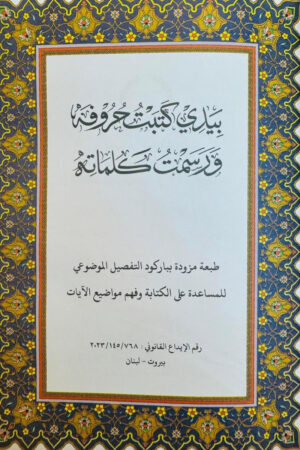 بيدي كتبت حروفه
ورسمت كلماته
طبعة مزودة بباركود التفصيل الموضوعي
للمساعدة على الكتابة وفهم مواضيع الآيات
رقم الإيداع القانوني : ٢٠٢٣/١٤٥/٧٦٨
بيروت - لبنان